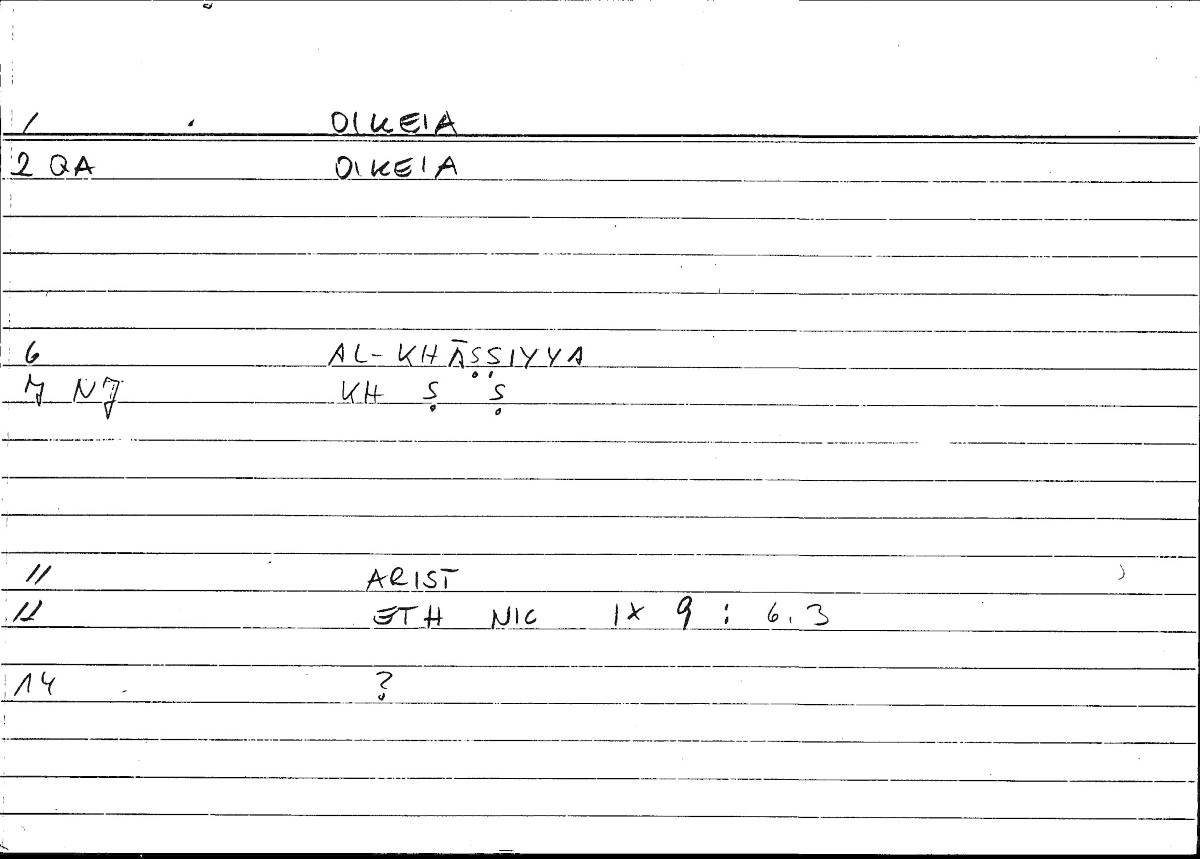 1 OIKEIA
2 QA OIKEIA
6 AL-KHĀṢṢIYYA
7 NJ KH Ṣ Ṣ
11 ARIST
12 ETH NIC IX 9 : 6.3
14 ?